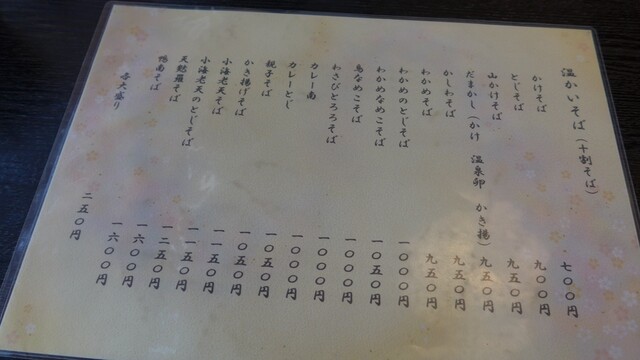 温かいそば（十割そば）
かけそば 七〇〇円
とじそば 九〇〇円
山かけそば 九五〇円
だまかし（かけ 温泉卯 かき揚） 九五〇円
かしわそば 九五〇円
わかめそば 九五〇円
わかめのとじそば 一〇〇〇円
わかめなめこそば 一〇五〇円
鳥なめこそば 一〇〇〇円
わさびとろろそば 一〇〇〇円
カレー南 一〇〇〇円
カレーとじ 一〇五〇円
親子そば 一〇五〇円
かき揚げそば 一一五〇円
小海老天そば 一一五〇円
小海老天のとじそば 一二五〇円
天麩羅そば 一六〇〇円
鴨南そば 一六〇〇円
各大盛り 二五〇円